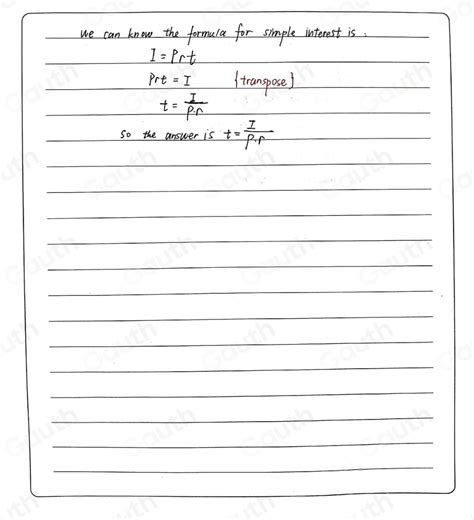 We can know the formula for simple interest is :
I = Prt
Prt = I {transpose}
t = I/P·r
So the answer is t = I/P·r